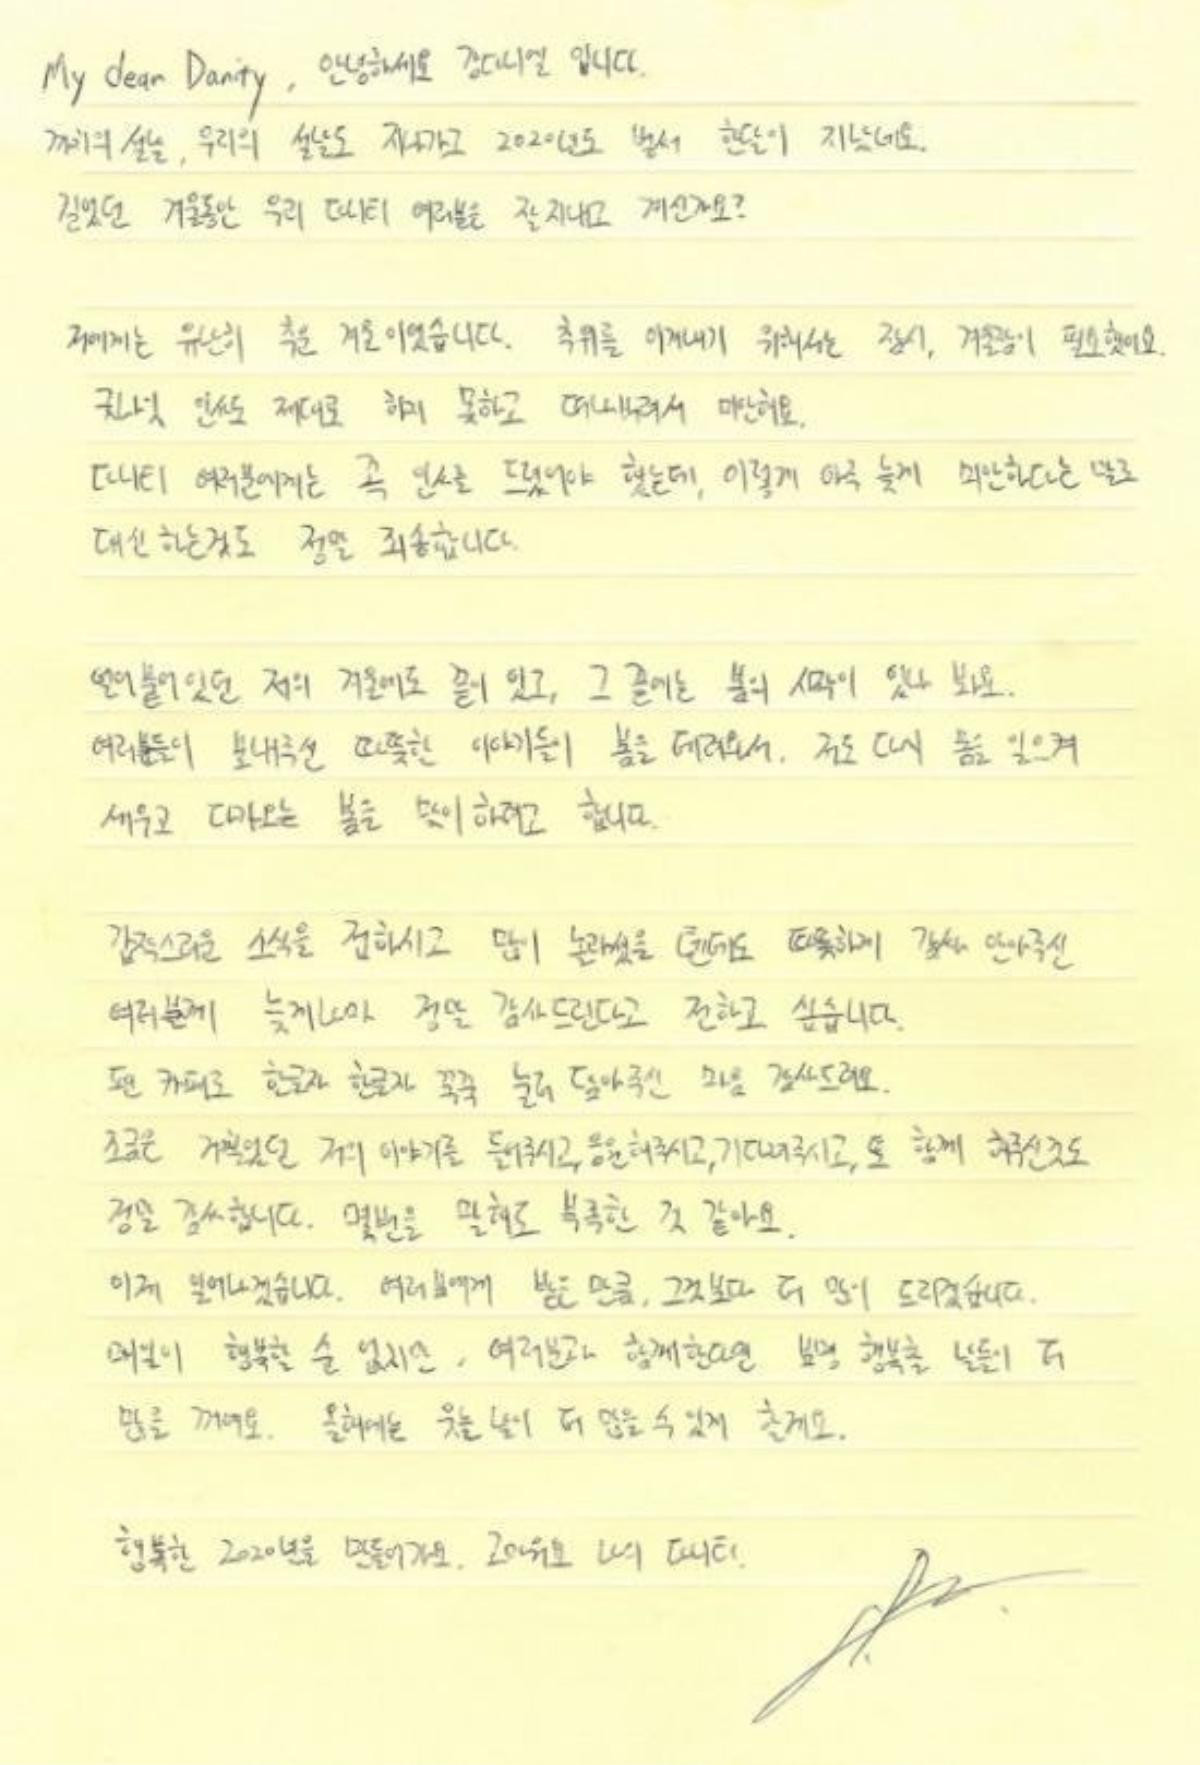 My dear Danity, 안녕하세요 강다니엘 입니다.
까치의 설날, 우리의 설날도 지나가고 2020년도 벌써 한달이 지났네요.
길었던 겨울동안 우리 다니티 여러분은 잘 지내고 계신가요?
저에게는 유난히 추운 겨울이었습니다. 추위를 이겨내기 위해서는 잠시, 겨울잠이 필요했어요.
그날엔 인사도 제대로 하지 못하고 떠나버려서 미안해요.
다니티 여러분에게는 꼭 인사를 드렸어야 했는데, 이렇게 아주 늦게 미안하다는 말로
대신 하는것도 정말 죄송합니다.
얼어붙어 있던 저의 겨울에도 끝이 있고, 그 끝에는 봄의 시작이 있나 봐요.
여러분들이 보내주신 따뜻한 이야기들이 봄을 데려와서. 저도 다시 몸을 일으켜
세우고 다가오는 봄을 맞이 하려고 합니다.
갑작스러운 소식을 접하시고 많이 놀라셨을 텐데도 따뜻하게 감싸 안아주신
여러분께 늦게나마 정말 감사드린다고 전하고 싶습니다.
팬 카페로 한글자 한글자 꾹꾹 눌러 담아주신 마음 감사드려요.
조금은 거칠었던 저의 이야기를 들어주시고, 응원해주시고, 기다려주시고, 또 함께 해주신것도
정말 감사합니다. 몇번을 말해도 부족한 것 같아요.
이제 일어나겠습니다. 여러분에게 받은 만큼, 그것보다 더 많이 드리겠습니다.
매일이 행복할 순 없지만, 여러분과 함께한다면 분명 행복할 날들이 더
많을 꺼에요. 올해에는 웃는 날이 더 많을 수 있게 할게요.
행복한 2020년을 만들어가요. 고마워요 나의 다니티.